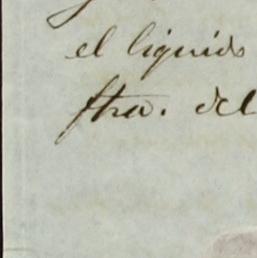 el liquido
ftra. del